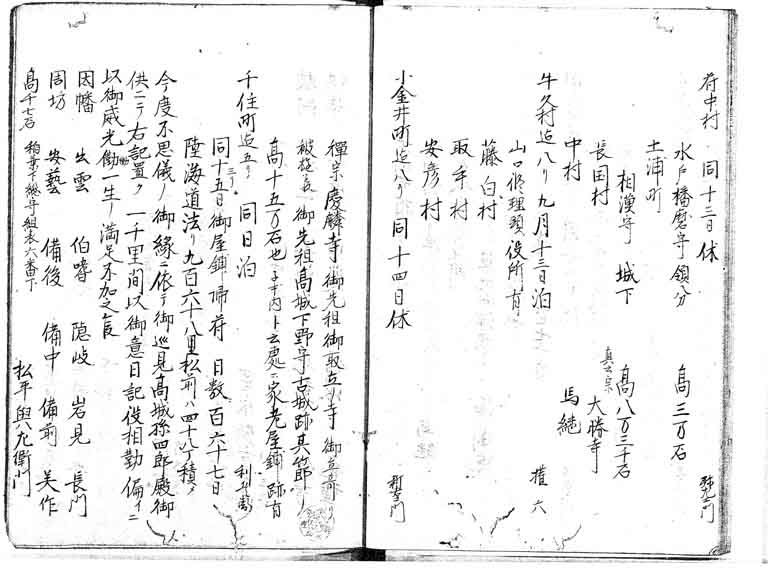 府中村 同十三日休 弥左エ門
水戸播磨守領分 高三万石
土浦町
相漢守 城下 高八万三千石
長国村 真言宗 大勝寺
中村 馬継
牛久村迄八リ 九月十三日泊 権六
山口修理頭役所有
藤白村
取手村
安彦村
小金井町迄八リ 同十四日休 新左エ門
禅宗慶麟寺 御先祖御取立ノ寺 御立寄リ
被遊候 御先祖高城下野守古城跡其節ノ
高十五万石也 ト云處ニ家老屋鋪跡有
千住町迄五リ 同日泊 利兵衛
同十五日御屋鋪帰府 日数百六十七日
陸海道法リ九百六十八里松前ハ四十八丁積ノ
今度不思儀ノ御縁ニ依テ御巡見高城孫四郎殿御
供ニテ右記置ク 一千里ノ間以御意日記役相勤 偏イニ
以御威光働一生ノ満足不加之皆
因幡 出雲 伯嗜 隠岐 岩見 長門
周坊 安藝 備後 備中 備前 美作
高千七石 組表六番下
松平與八左衛門